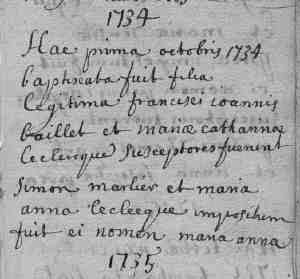 1734
Hac prima octobris 1734
baptisata fuit filia
legitima francisci ioannis
baillet et mariæ catharinæ
leclercque susceptores fuerunt
simon marlier et maria
anna leclecque impositum
fuit ei nomen maria anna
1735